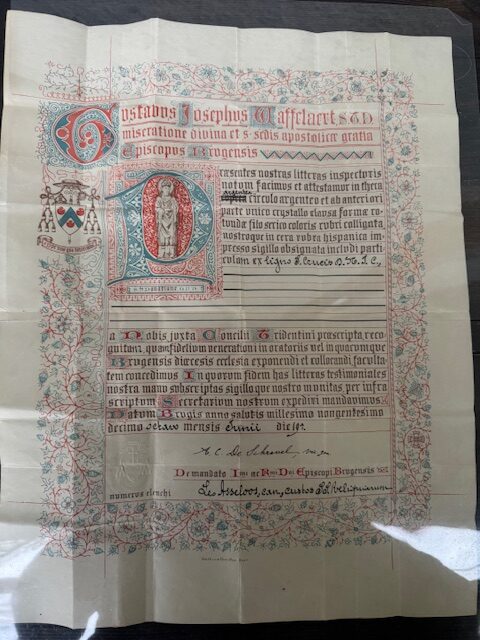 Gustavus Josephus Waffelaert S T D
miseratione divina et s. sedis apostolicæ gratia
Episcopus Brugensis
Præsentes nostras litteras inspecturis
notum facimus et attestamur in theca
argentea
circulo argenteo et ab anteriori
parte unico crystallo clausa forma ro-
tunda filo serico coloris rubri colligata
nostroque in cera rubea hispanica im-
presso sigillo obsignata includi parti-
culam ex ligno S. Crucis D. N. J. C.
a Nobis juxta Concilii Tridentini præscripta reco-
gnitam, quam fidelium venerationi in oratoriis vel in quacumque
Brugensis diœcesis ecclesia exponendi et collocandi faculta-
tem concedimus In quorum fidem has litteras testimoniales
nostra manu subscriptas sigilloque nostro munitas per infra
scriptum Secretarium nostrum expediri mandavimus
Datum Brugis anno salutis millesimo nongentesimo
decimo octavo mensis Junii die 19a
A. C. De Schrevel, vic. gen.
De mandato Illmi ac Rmi Dni Episcopi Brugensis
numerus elenchi
Leo Asseloos, can., custos SS. Reliquiarum